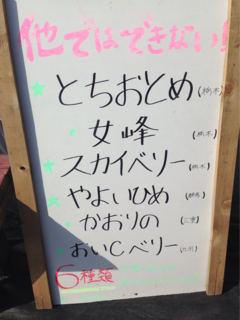 他ではできない!
とちおとめ(栃木)
女峰(栃木)
スカイベリー(栃木)
やよいひめ(群馬)
かおりの(三重)
おいCベリー(九州)
6種類